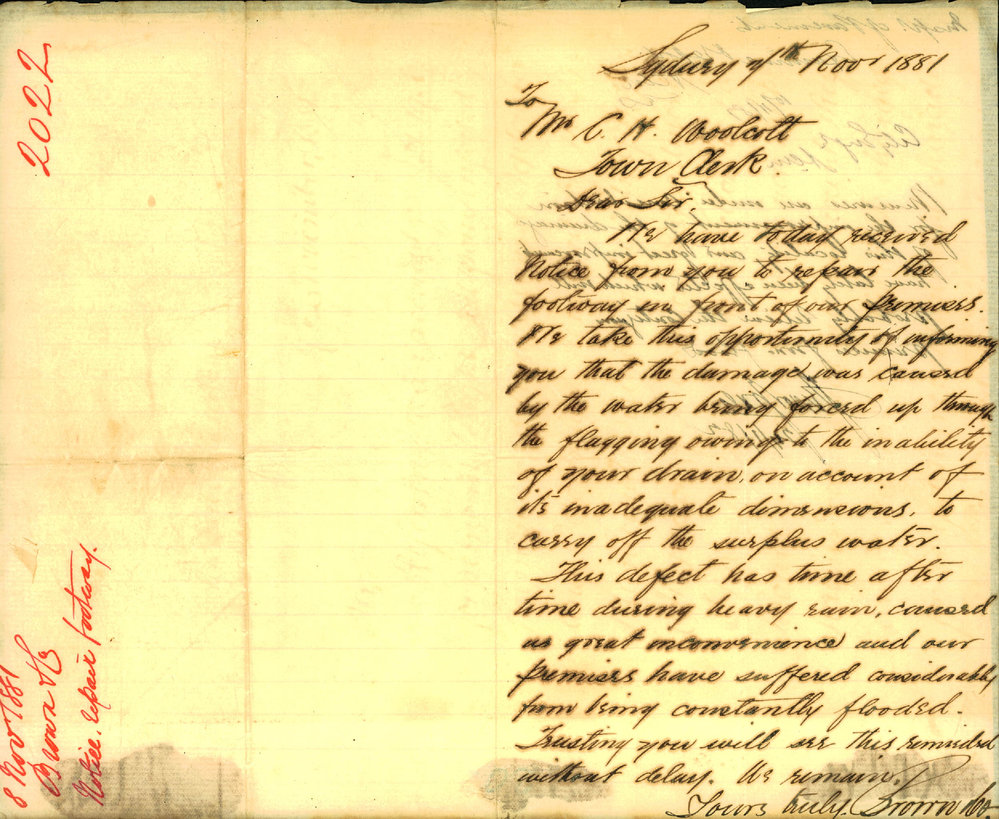 2022
8 Novr 1881
Brown & Co
Notice. repair footway.
Sydney 7th Novr 1881
To
Mr C. H. Woolcott
Town Clerk.
Dear Sir,
We have today received
Notice from you to repair the
footway in front of our premises.
We take this opportunity of informing
you that the damage was caused
by the water being forced up through
the flagging owing to the inability
of your drain, on account of
its inadequate dimensions, to
carry off the surplus water.
This defect has time after
time during heavy rain, caused
us great inconvenience and our
premises have suffered considerably
from being constantly flooded.
Trusting you will see this remided
without delay. We remain,
Yours truly. Brown & Co.